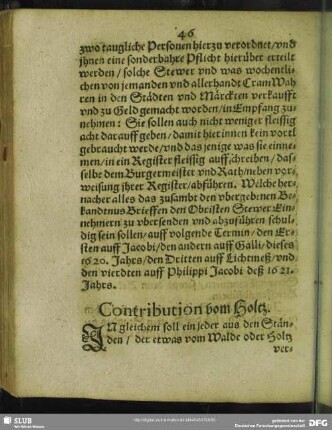 46
zwo taugliche Personen hierzu verordnet/vnd
jhnen eine sonderbahre Pflicht hierüber erteilt
werden/ solche Stewer vnd was wochentli-
chen von jemanden vnd allerhandt Cram Wah
ren in den Städten vnd Märckten verkaufft
vnd zu Geld gemacht worden/in Empfang zu
nehmen: Sie sollen auch nicht weniger fleissig
acht darauff geben/ damit hierinnen kein vortl
gebraucht werde/vnd das jenige was sie einne-
men/in ein Register fleissig auffschreiben/das-
selbe dem Burgermeister vnd Rath/neben vor-
weisung jhrer Register/abführen. Welche her-
nacher alles das zusambt den vbergebenen Be-
kandtnus Brieffen den Obristen Stewer Ein-
nehmern zu vbersenden vnd abzuführen schul-
dig sein sollen/ auff volgende Termin/ den Er-
sten auff Jacobi/den andern auff Galli/dieses
1620. Jahrs/den Dritten auff Lichtmeß/vnd
den vierdten auff Philippi Jacobi deß 1621.
Jahrs.
Contribution vom Holtz.
IN gleichem soll ein jeder aus den Stän-
den/ der etwas vom Walde oder Holtz
ver-
SLUB
DFG